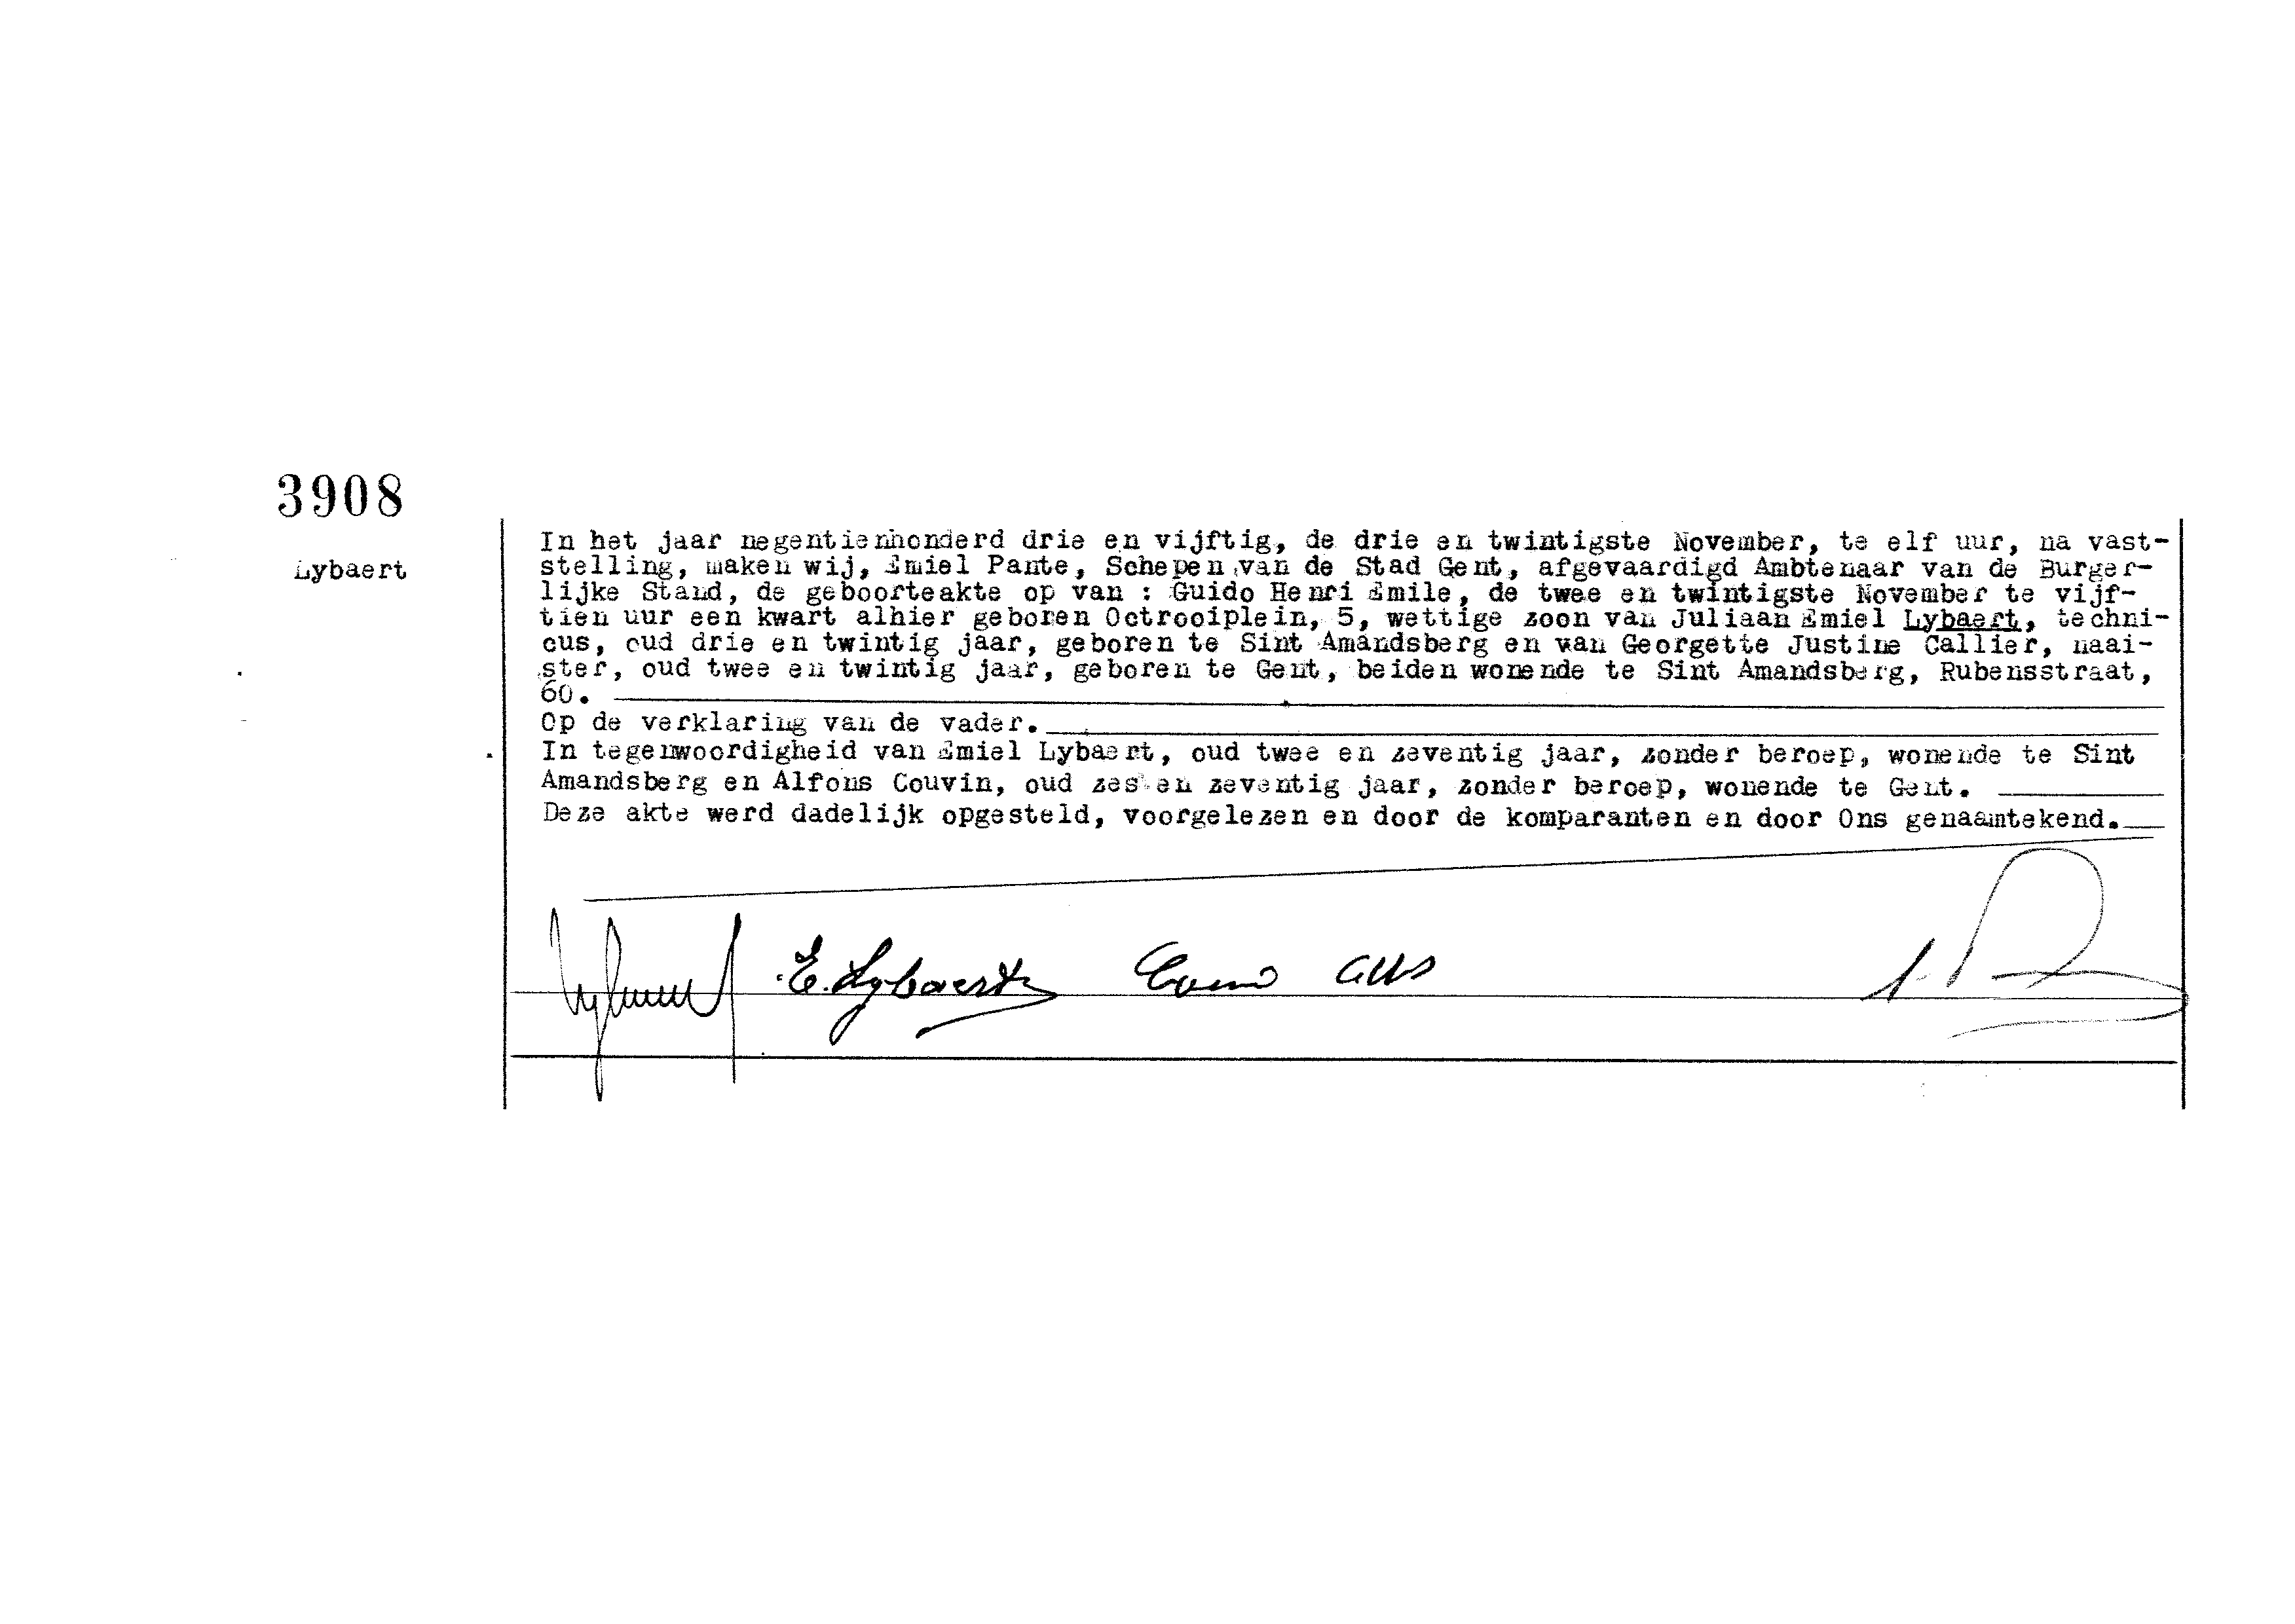 3908
Lybaert
In het jaar negentienhonderd drie en vijftig, de drie en twintigste November, te elf uur, na vast-
stelling, maken wij, Emiel Pante, Schepen van de Stad Gent, afgevaardigd Ambtenaar van de Burger-
lijke Stand, de geboorteakte op van : Guido Henri Emile, de twee en twintigste November te vijf-
tien uur een kwart alhier geboren Octrooiplein, 5, wettige zoon van Juliaan Emiel Lybaert, techni-
cus, oud drie en twintig jaar, geboren te Sint Amandsberg en van Georgette Justine Callier, naai-
ster, oud twee en twintig jaar, geboren te Gent, beiden wonende te Sint Amandsberg, Rubensstraat,
60.
Op de verklaring van de vader.
In tegenwoordigheid van Emiel Lybaert, oud twee en zeventig jaar, zonder beroep, wonende te Sint
Amandsberg en Alfons Couvin, oud zes en zeventig jaar, zonder beroep, wonende te Gent.
Deze akte werd dadelijk opgesteld, voorgelezen en door de komparanten en door Ons genaamtekend.
E. Lybaert